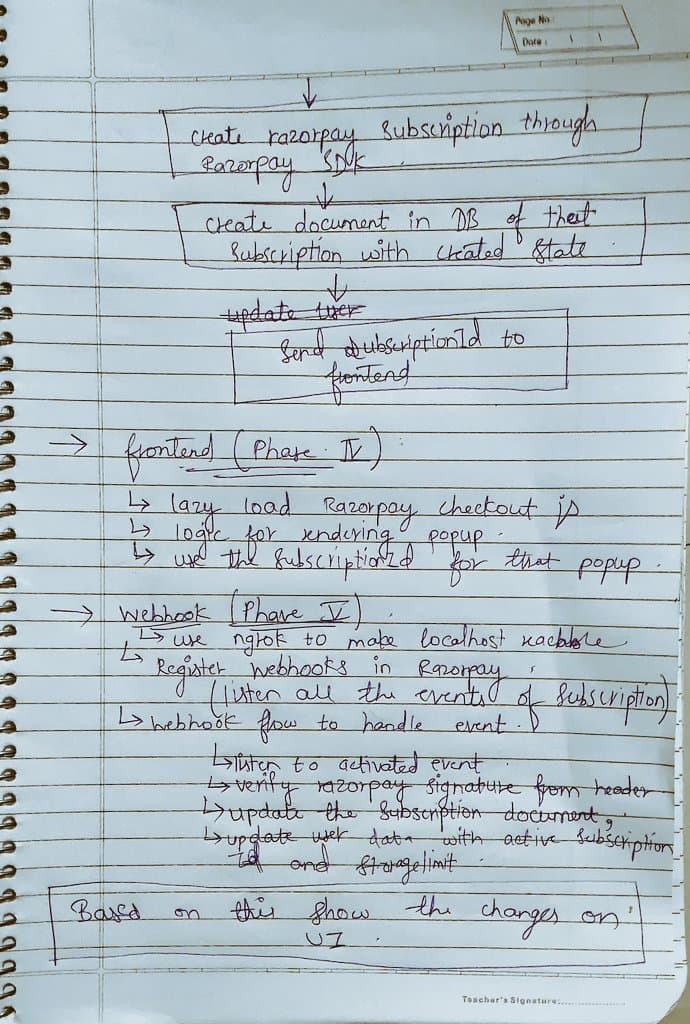 Page No.
Date :
↓
create razorpay subscription through
Razorpay SDK
↓
create document in DB of that
subscription with created state
↓
update user
Send subscriptionId to
frontend
→ frontend (Phase IV)
↳ lazy load Razorpay checkout js
↳ logic for rendering popup
↳ use the subscriptionId for that popup.
→ webhook (Phase V)
↳ use ngrok to make localhost reachable
↳ Register webhooks in Razorpay
(listen all the events of subscription)
↳ webhook flow to handle event.
↳ listen to activated event
↳ verify razorpay signature from header
↳ update the subscription document,
↳ update user data with active subscription
Id and storagelimit.
Based on this show the changes on
UI.
Teacher's Signature:..............